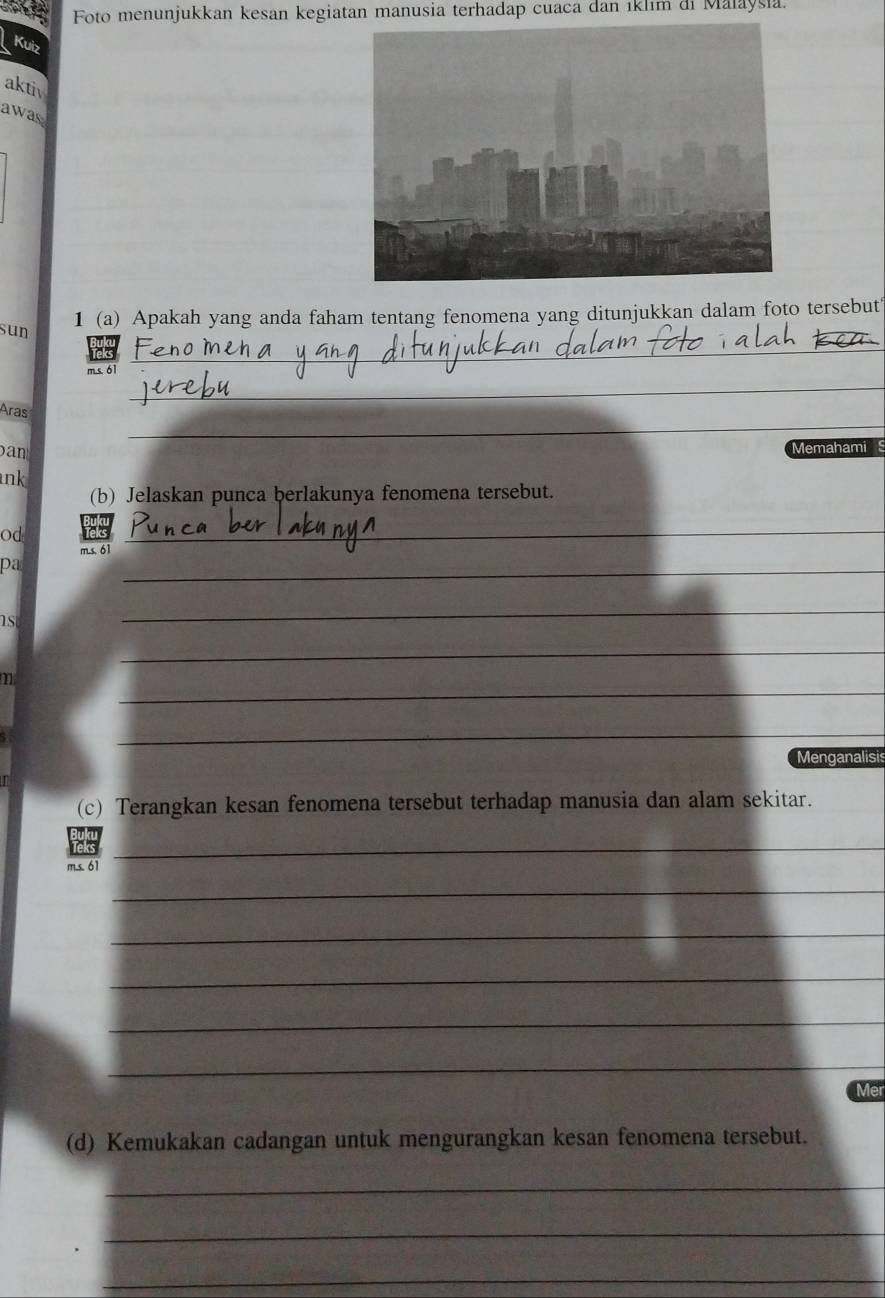 Foto menunjukkan kesan kegiatan manusia terhadap cuaca dan iklim di Malaysia.
Kuiz
aktiv
awas
1 (a) Apakah yang anda faham tentang fenomena yang ditunjukkan dalam foto tersebut
sun
Buku Teks
m.s. 61
Fenomena yang ditunjukkan dalam foto ialah
jerebu
Aras
an
Memahami S
nk
(b) Jelaskan punca berlakunya fenomena tersebut.
Buku Teks
m.s. 61
Punca berlakunya
od
pa
m
Menganalisis
(c) Terangkan kesan fenomena tersebut terhadap manusia dan alam sekitar.
Buku Teks
m.s. 61
Mer
(d) Kemukakan cadangan untuk mengurangkan kesan fenomena tersebut.